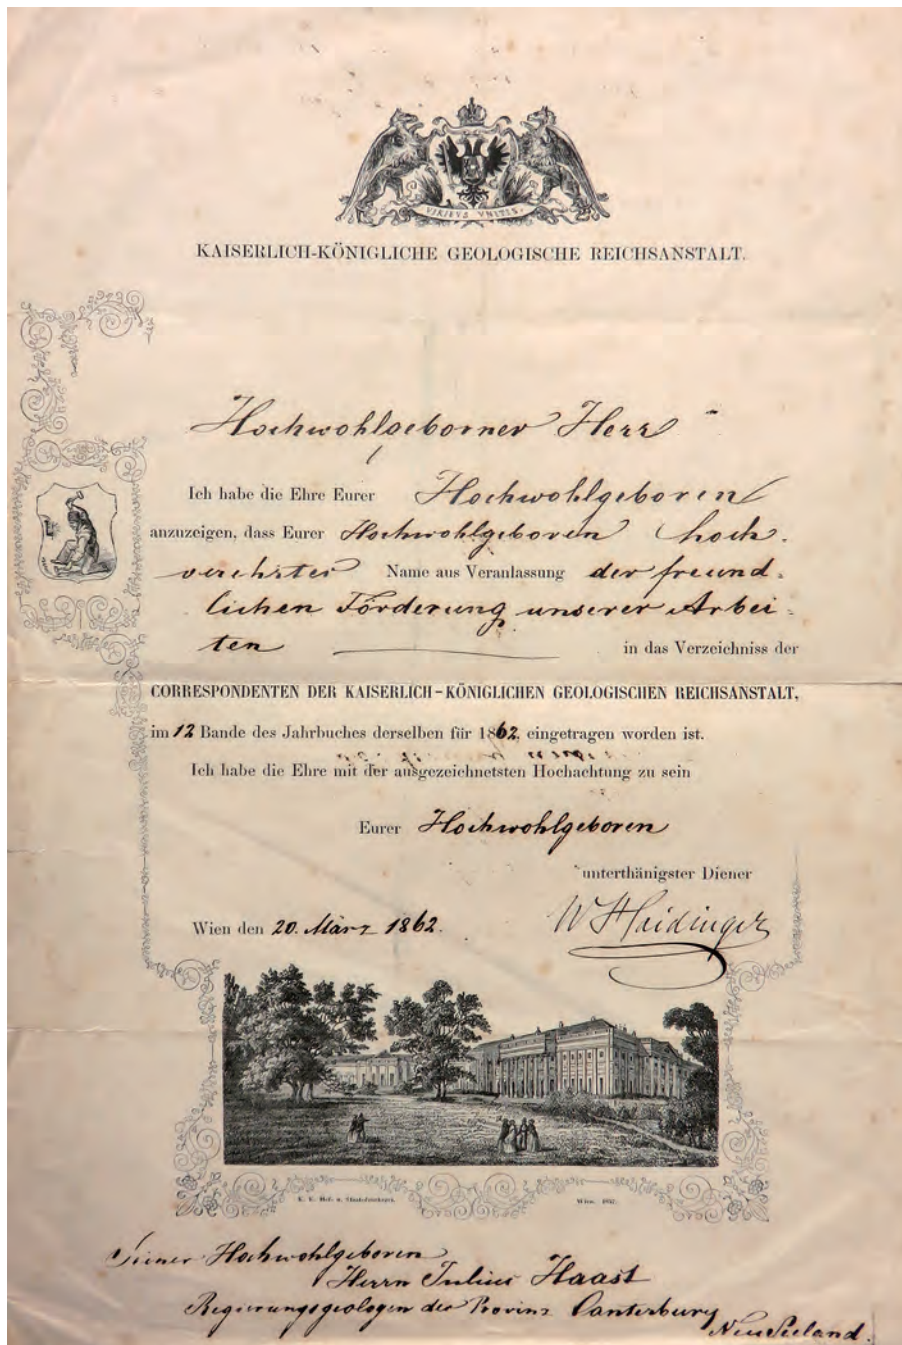 VIRIBVS VNITIS.
KAISERLICH-KÖNIGLICHE GEOLOGISCHE REICHSANSTALT.
Hochwohlgeborner Herr
Ich habe die Ehre Eurer Hochwohlgeboren
anzuzeigen, dass Eurer Hochwohlgeboren hoch-
verehrter Name aus Veranlassung der freund-
lichen Förderung unserer Arbei-
ten in das Verzeichniss der
CORRESPONDENTEN DER KAISERLICH-KÖNIGLICHEN GEOLOGISCHEN REICHSANSTALT,
im 12 Bande des Jahrbuches derselben für 1862, eingetragen worden ist.
Ich habe die Ehre mit der ausgezeichnetsten Hochachtung zu sein
Eurer Hochwohlgeboren
unterthänigster Diener
Wien den 20. März 1862. W Haidinger
K. K. Hof- u. Staatsdruckerei. Wien.
Seiner Hochwohlgeboren
Herrn Julius Haast
Regierungsgeologen der Provinz Canterbury
Neu Seeland.